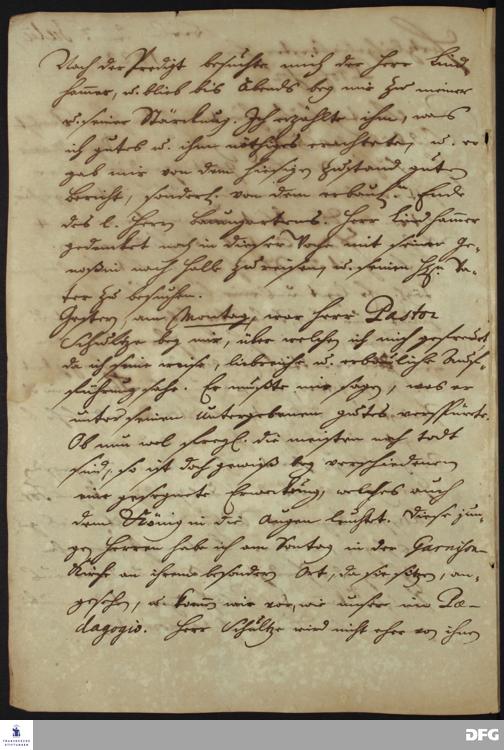 Nach der Predigt besuchte mich der Herr Lind-
hammer, u. blieb bis Abends bey mir zu meiner
u. seiner Stärckung. Ich erzählte ihm, was
ich gutes u. ihm nöthiges erachtete, u. er
gab mir von dem hiesigen Zustand guten
Bericht, sonderl. von dem erbaul. Ende
des l. Herrn Baumgartens. Herr Lindhammer
gedencket noch in dieser Woche mit seiner Ge-
noßin nach Halle zu reisen, u. seinen H. Va-
ter zu besuchen.
Gestern, am Montag, war Herr Pastor
Schultze bey mir, über welchen ich mich gefreuet
da ich seine weise, liebreiche u. erbauliche Auf-
führung sahe. Er mußte mir sagen, was er
unter seinen Untergebenen gutes verspürte.
Ob nun wol die meisten noch todt
sind, so ist doch gewiß bey verschiedenen
eine gesegnete Erweckung, welches auch
dem König in die Augen leuchtet. Diese jun-
gen Herren habe ich am Sontag in der Garnison-
Kirche an ihrem besondern Ort, da sie sitzen, an-
gesehen, u. kamen mir vor, wie unsere im Pæ-
dagogio. Herr Schultze wird nicht eher von ihnen
FRANCKESCHE
STIFTUNGEN
DFG